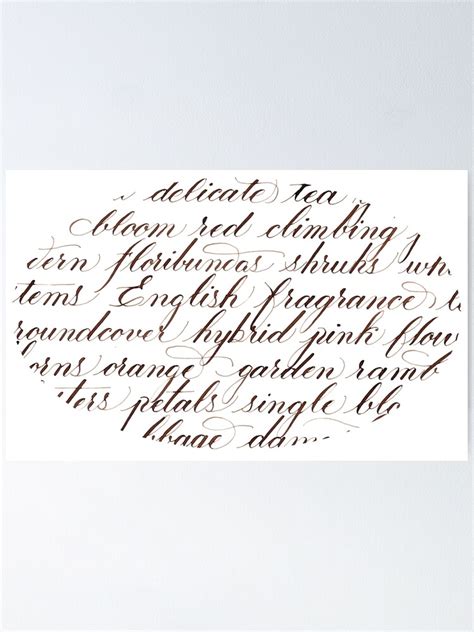 delicate tea
bloom red climbing
tern floribundas shrubs
tems English fragrance
roundcover hybrid pink flow
orns orange garden ramb
sters petals single blo
bbage dam